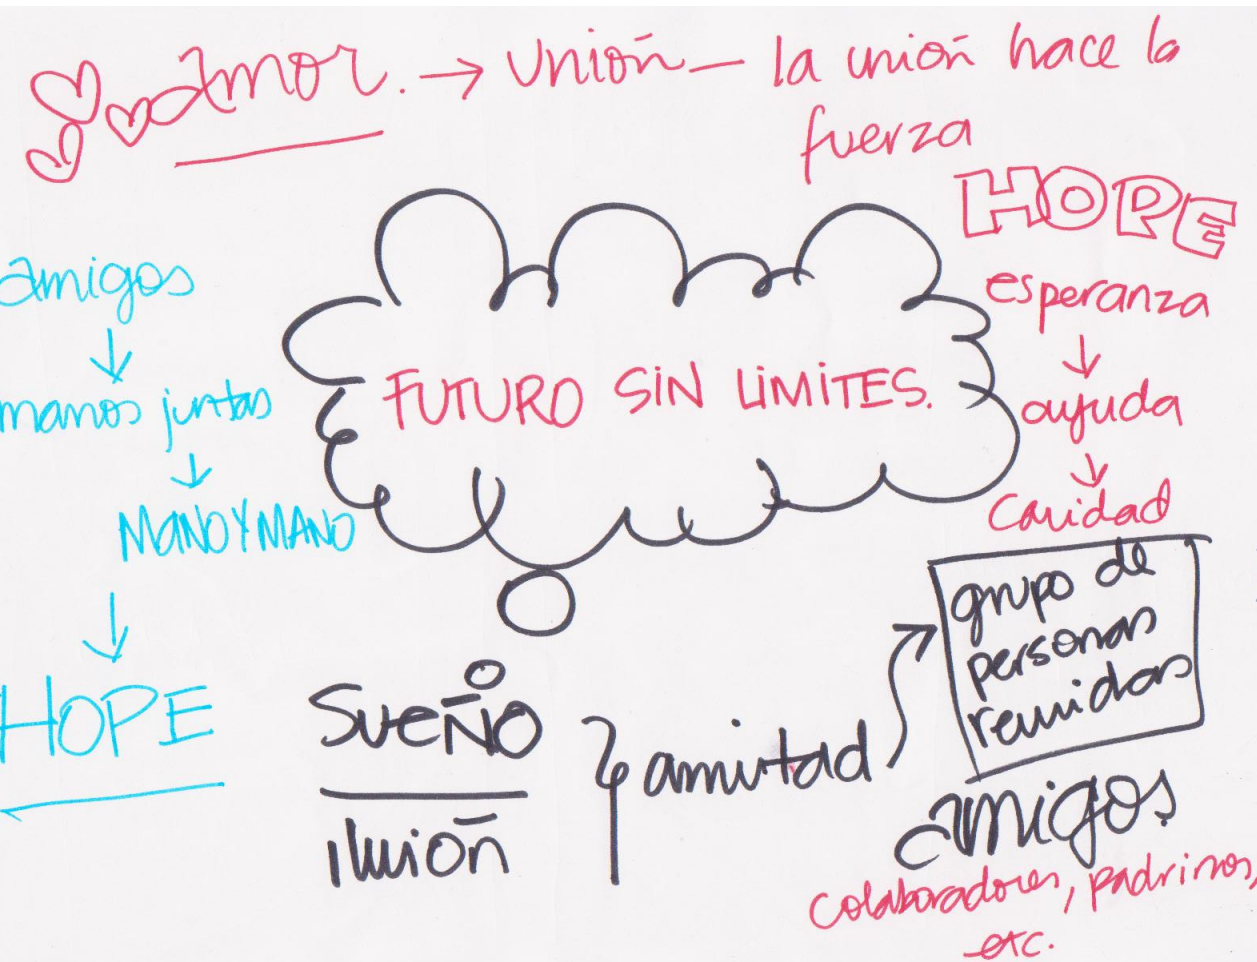 amor. → Unión – la unión hace la
fuerza
HOPE
esperanza
↓
ayuda
↓
caridad
amigos
↓
manos juntas
↓
MANO Y MANO
↓
HOPE
FUTURO SIN LIMITES.
SUEÑO
ilusión
amistad
grupo de
personas
reunidas
amigos
colaboradores, padrinos,
etc.